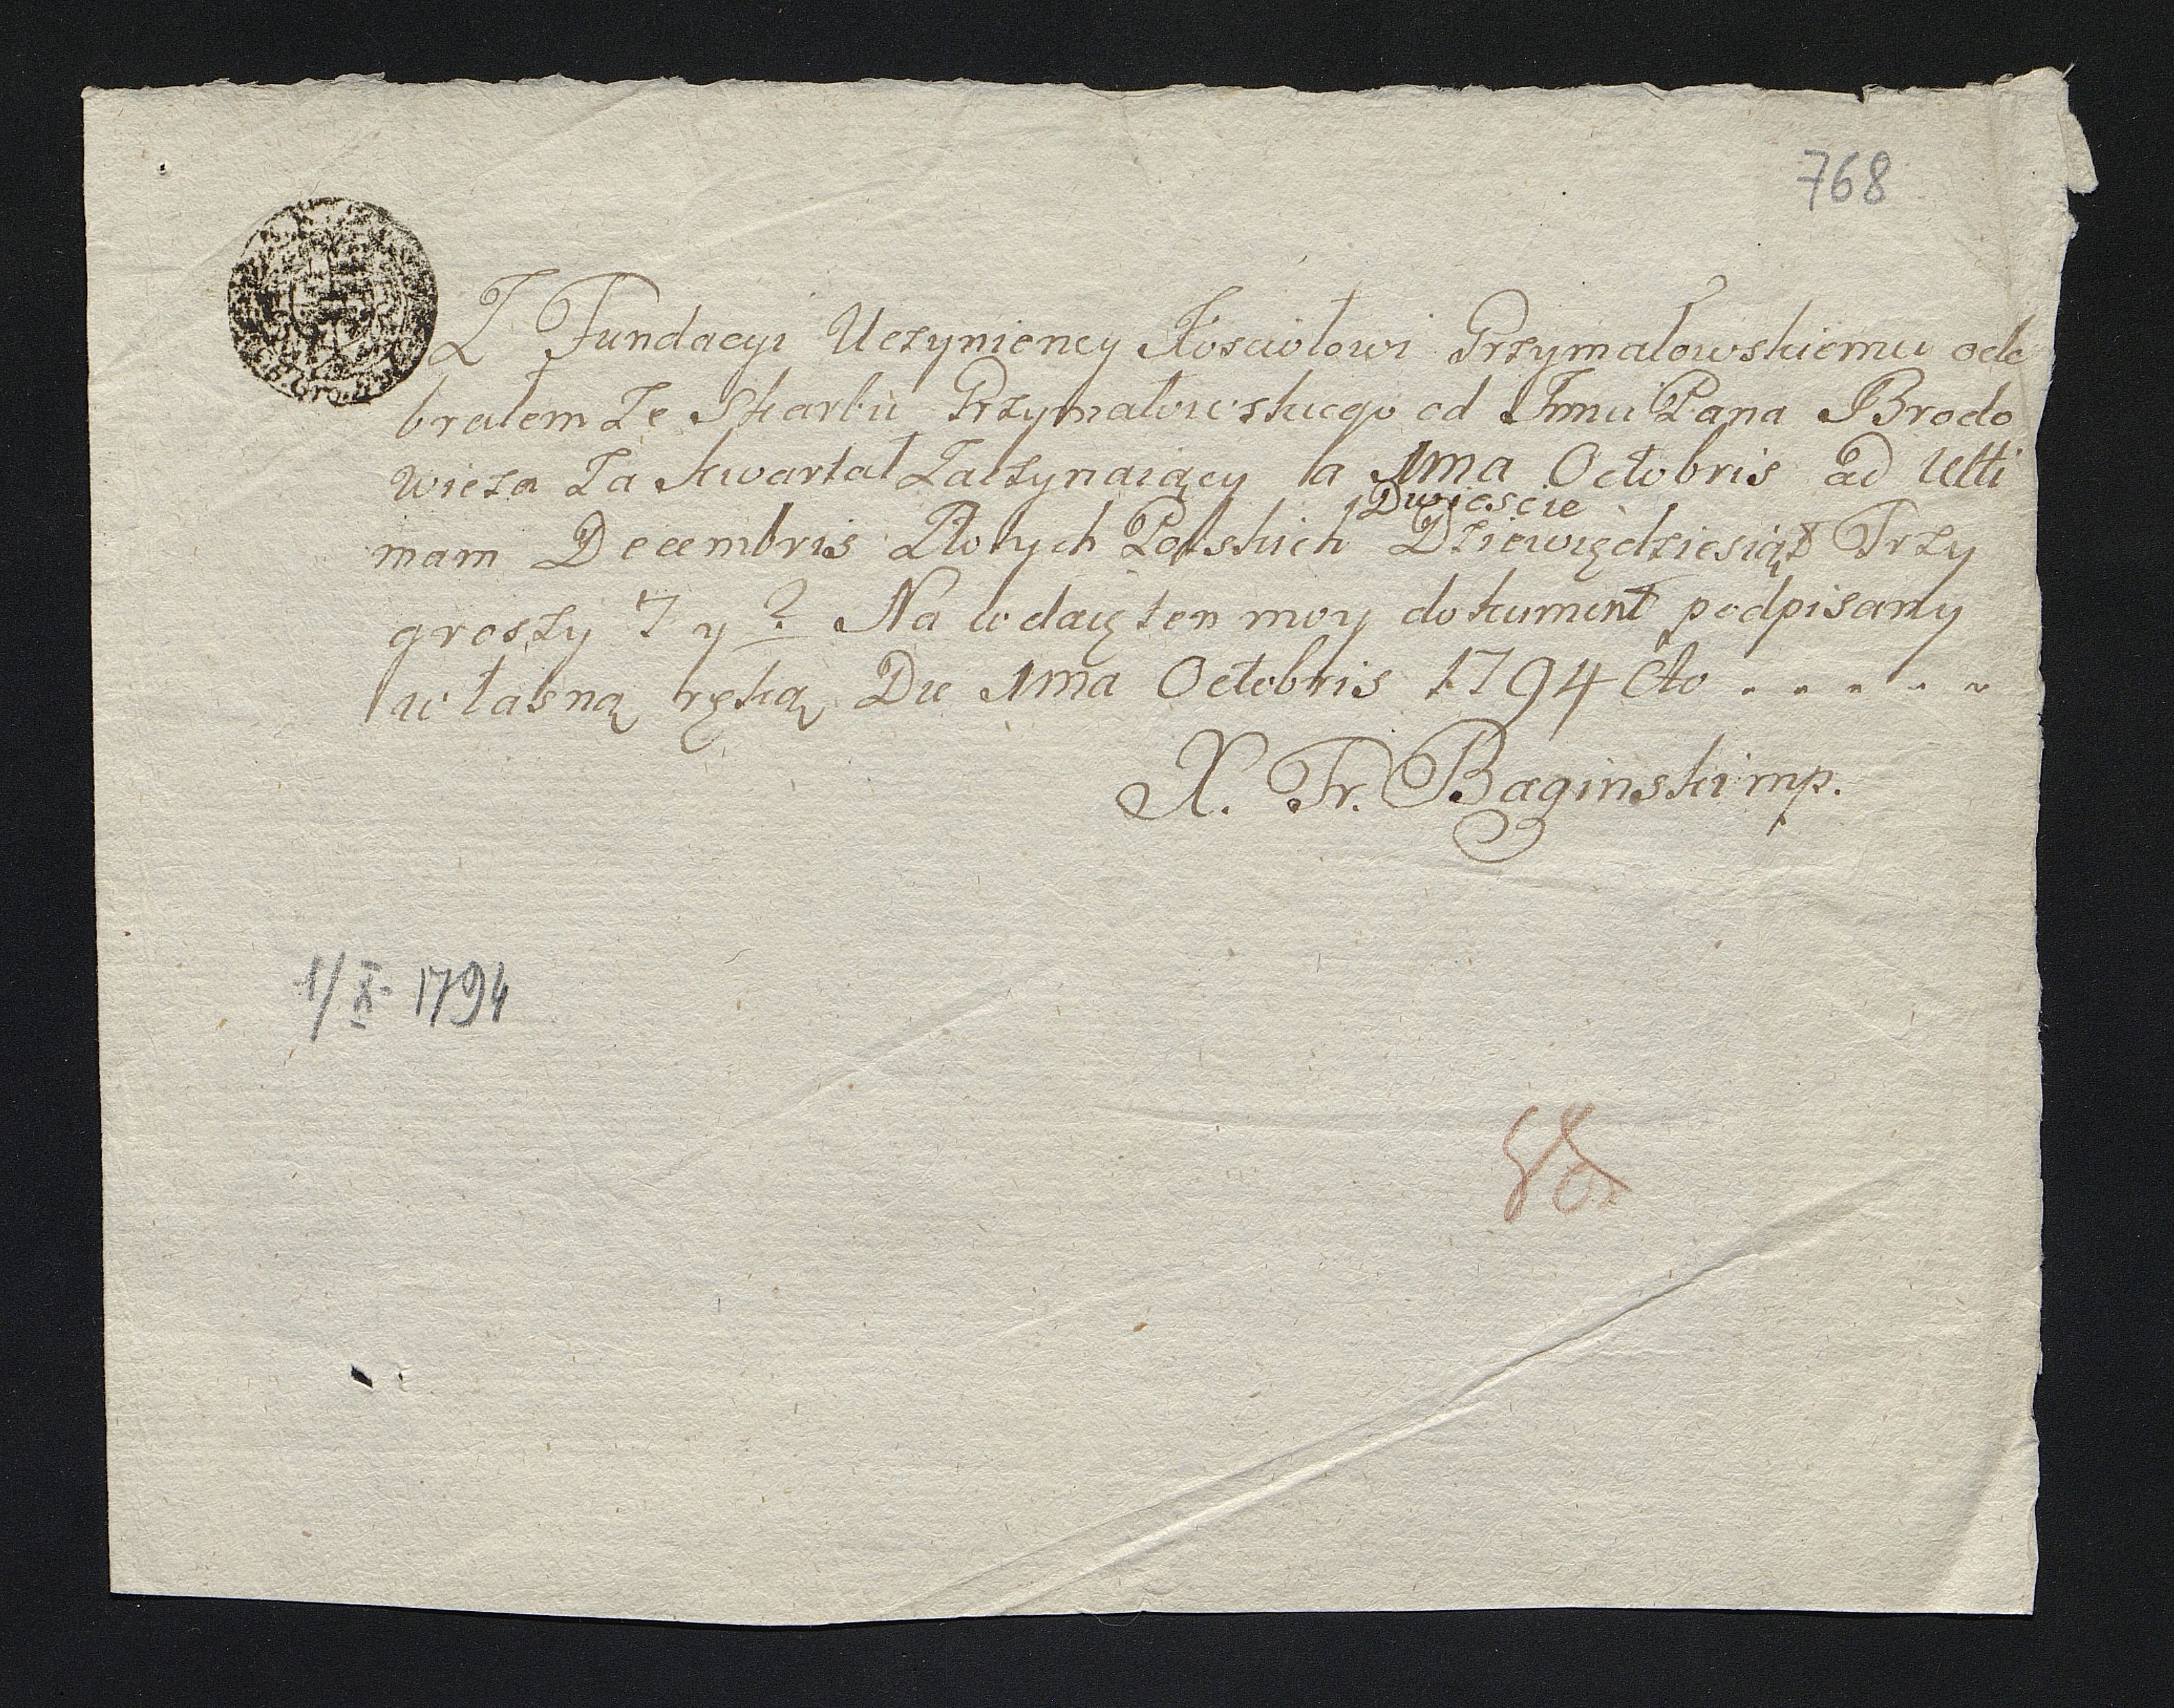 768
Z Fundacyi Uczynioney Kosciołowi Przymałowskiemu ode
brałem Ze Skarbu Przymałowskiego od Jmci Pana Brodo
wicza Za kwartał Zaczynaiący a 1ma Octobris ad Ulti
Dwiescie
mam Decembris Złotych Polskich Dziewiędziesiąt Trzy
groszy 7 y ? Na co daię ten moy dokument podpisany
własną ręką Die 1ma Octobris 1794 Ao . . . . .
X. Fr. Baginski mp.
1/X 1794